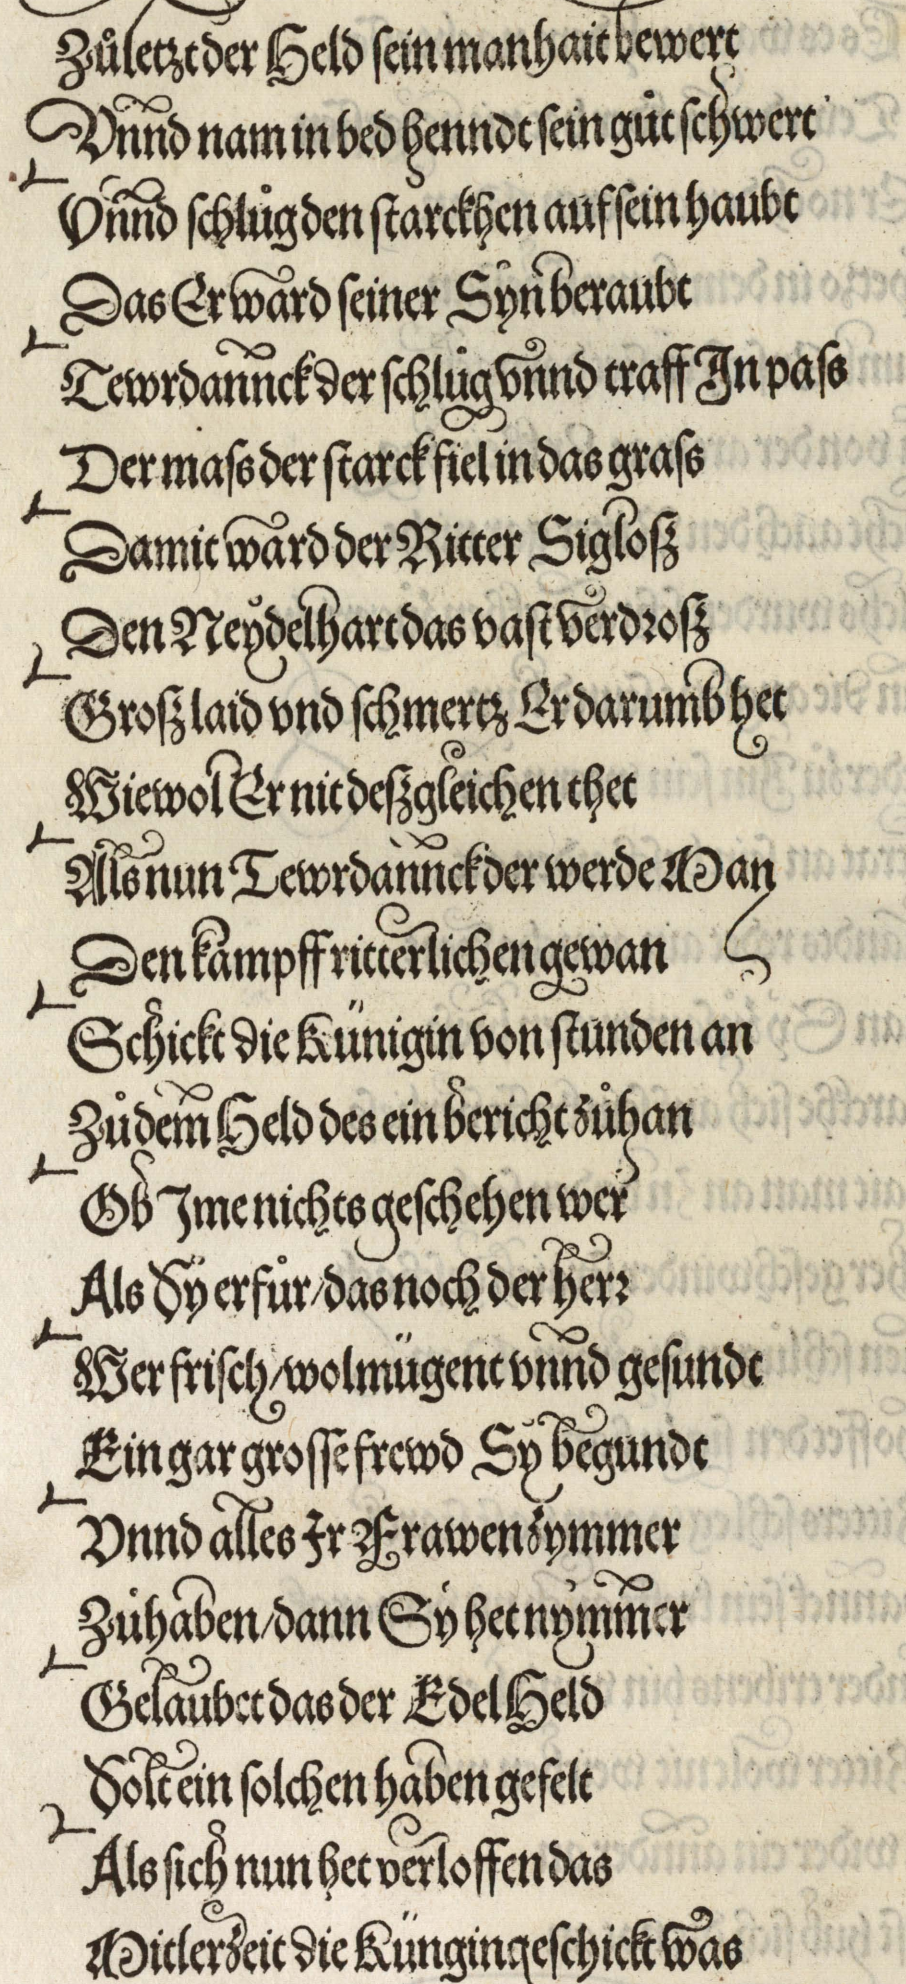 Zůletzt der Held sein manhait bewert
Vnnd nam in bed henndt sein gůt schwert
Vnnd schlůg den starckhen auf sein haubt
Das Er ward seiner Syn beraubt
Tewrdannck der schlůg vnnd traff In pass
Der mass der starck fiel in das grass
Damit ward der Ritter Sigloß
Den Neydelhart das vast verdroß
Groß laid vnd schmertz Er darumb het
Wiewol Er nit deßgleichen thet
Als nun Tewrdannck der werde Man
Den kampff ritterlichen gewan
Schickt die Künigin von stunden an
Zů dem Held des ein bericht zůhan
Ob Ime nichts geschehen wer
Als Sy erfůr / das noch der herr
Wer frisch / wolmügent vnnd gesundt
Ein gar grosse frewd Sy begundt
Vnnd alles Ir Frawenzymmer
Zůhaben / dann Sy het nymmer
Gelaubet das der Edel Held
Solt ein solchen haben gefelt
Als sich nun het verloffen das
Mitlerzeit die Küngin geschickt was